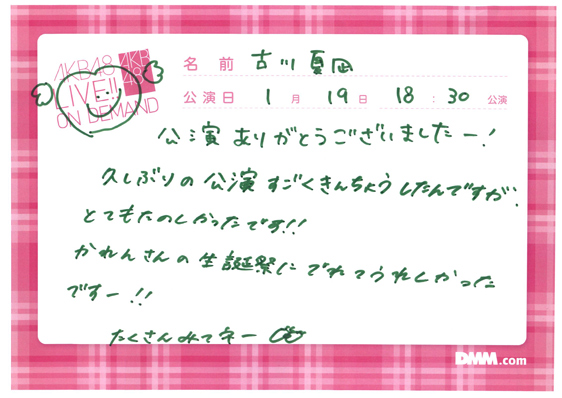 AKB48
LIVE!!
ON DEMAND
AKB
48
名前 古川夏凪
公演日 1月19日 18:30公演
公演ありがとうございましたー!
久しぶりの公演すごくきんちょうしたんですが、
とてもたのしかったです!!
かれんさんの生誕祭にでれてうれしかった
ですー!!
たくさんみてネー
DMM.com